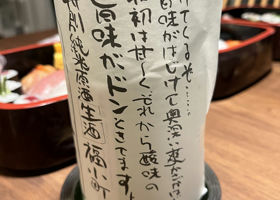 けてくる米……
旨味がはじけて奥深い
最初は甘〜くそれから酸味の
旨味がドンときてます!
特別純米原酒 生酒 福小町